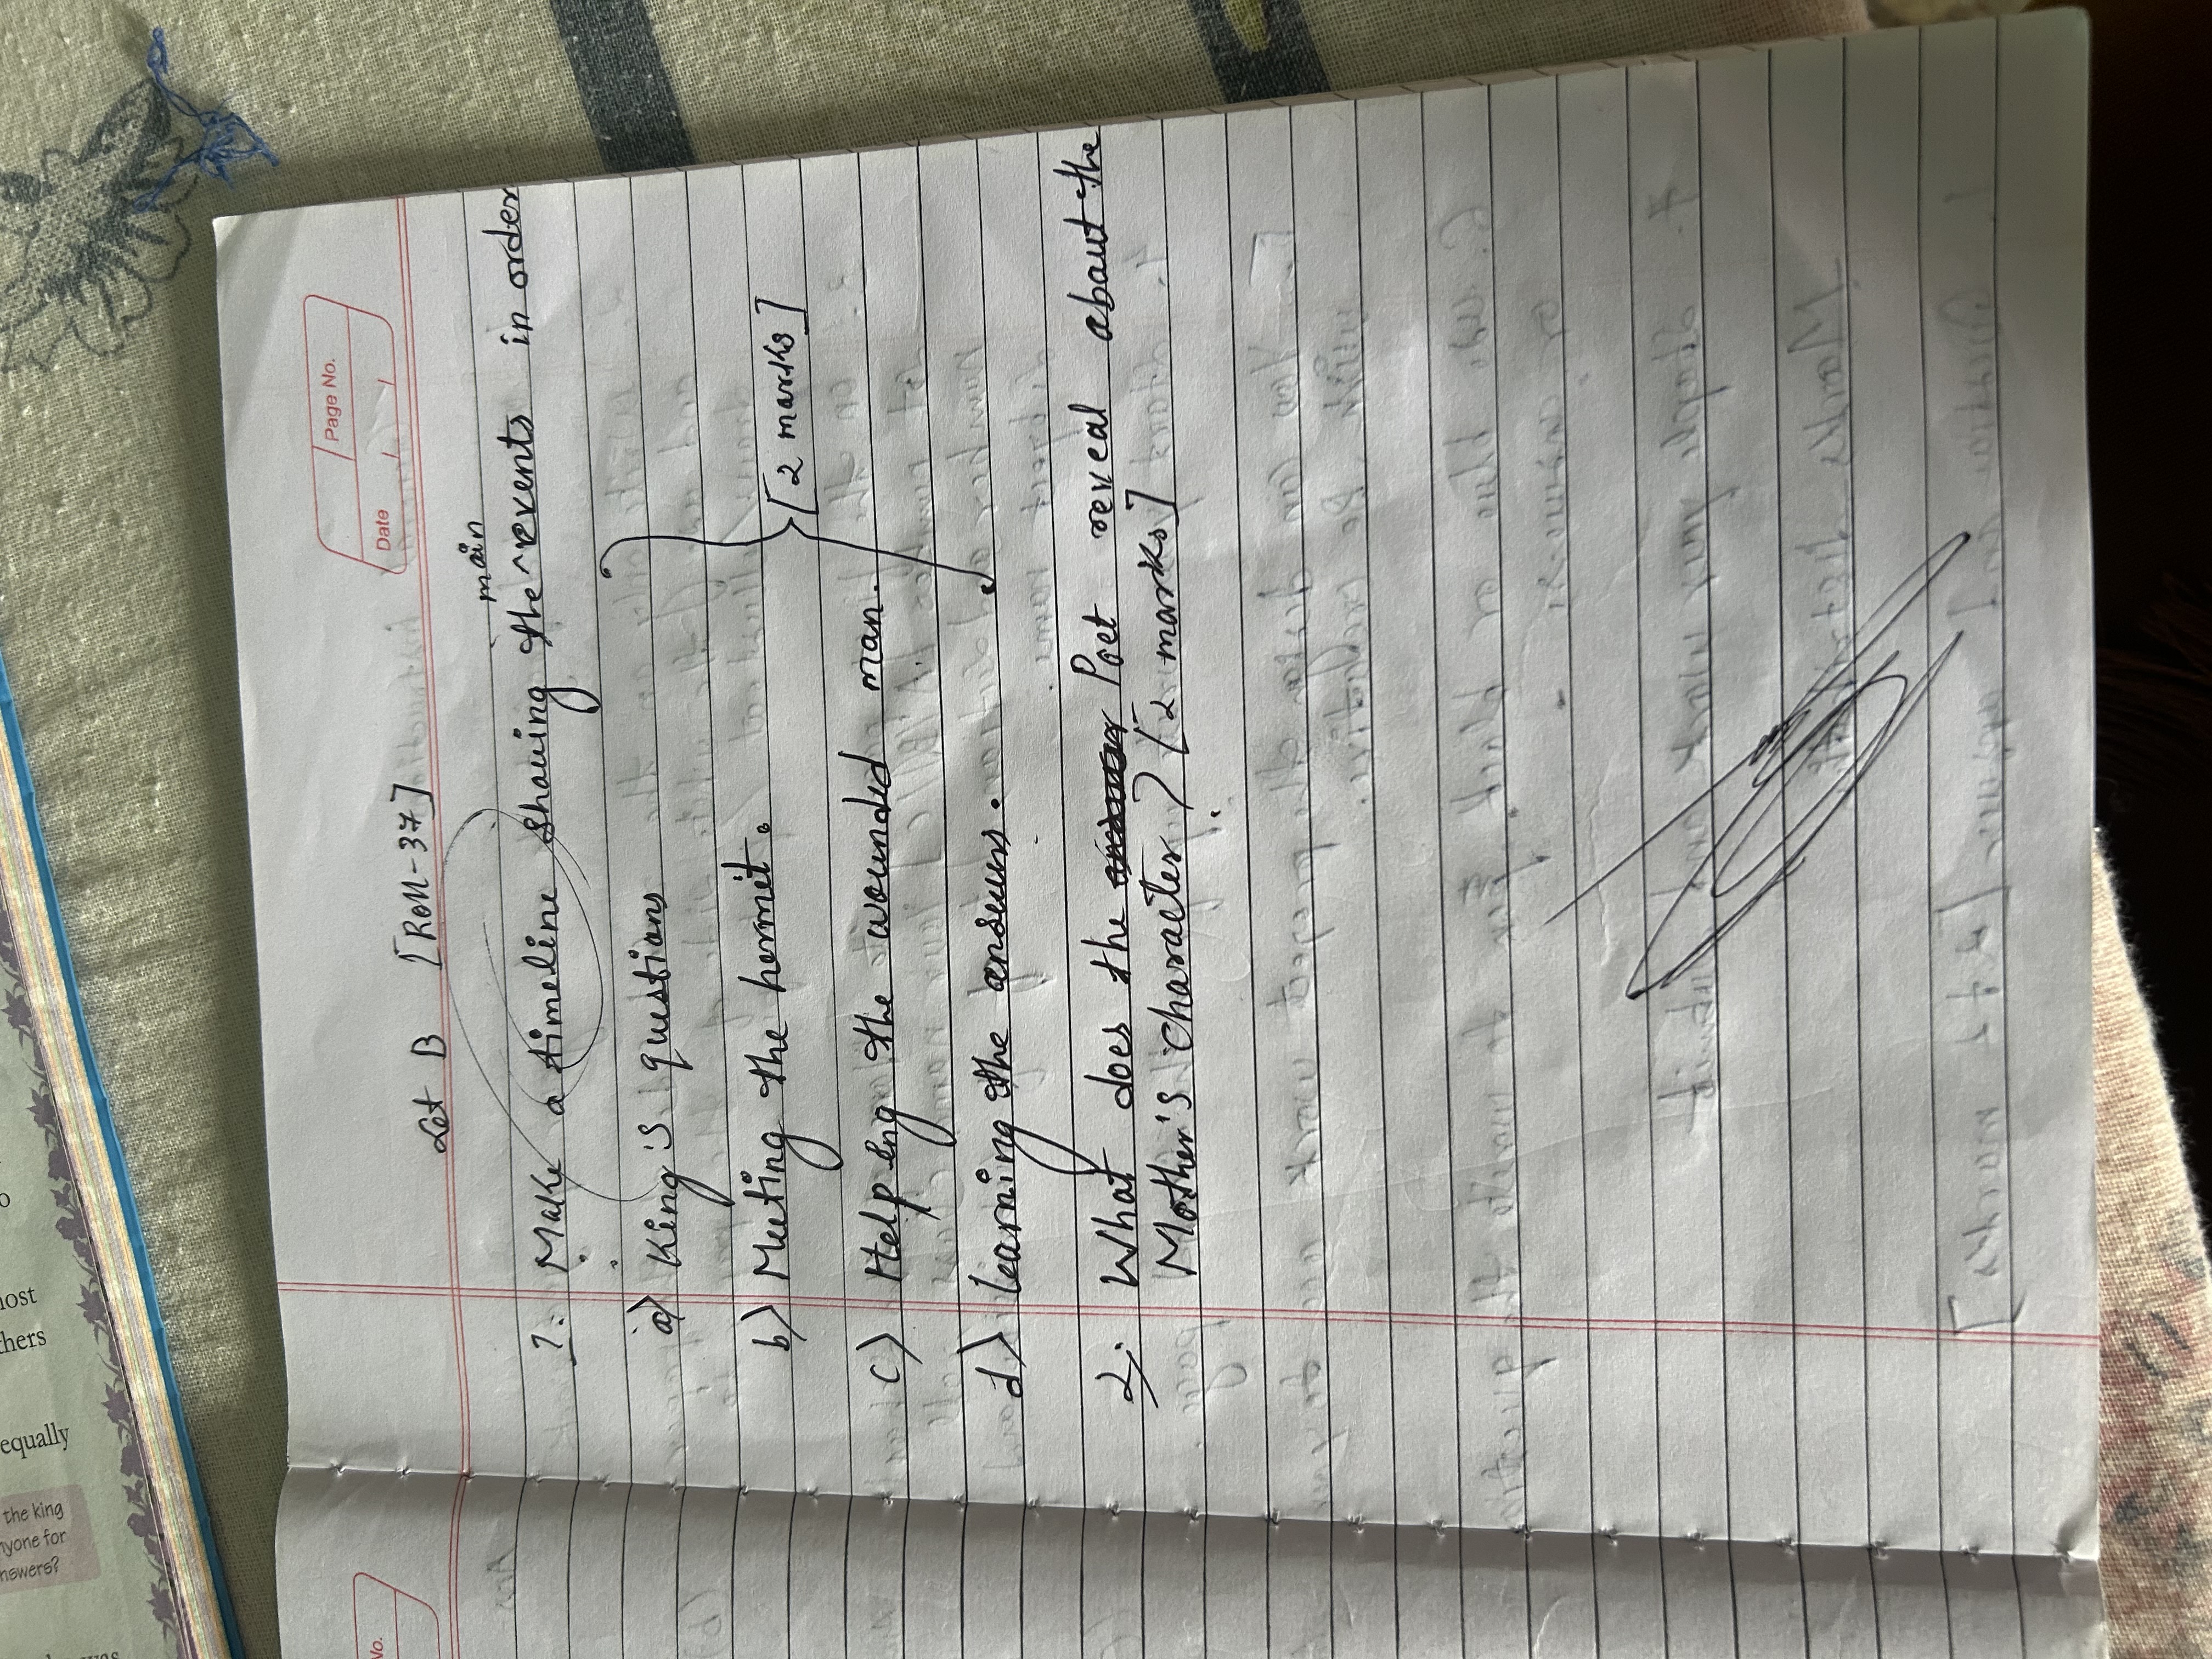 Page No.
Date
Set B [Roll-37]
main
1. Make a timeline showing the ^ events in order
a) King's questions
b) Meeting the hermit.
[2 marks]
c) Helping the wounded man.
d) learning the answers.
2. What does the Poet reveal about the
Mother's Character? [2 marks]
No.
most
thers
equally
the king
nyone for
nswers?
was